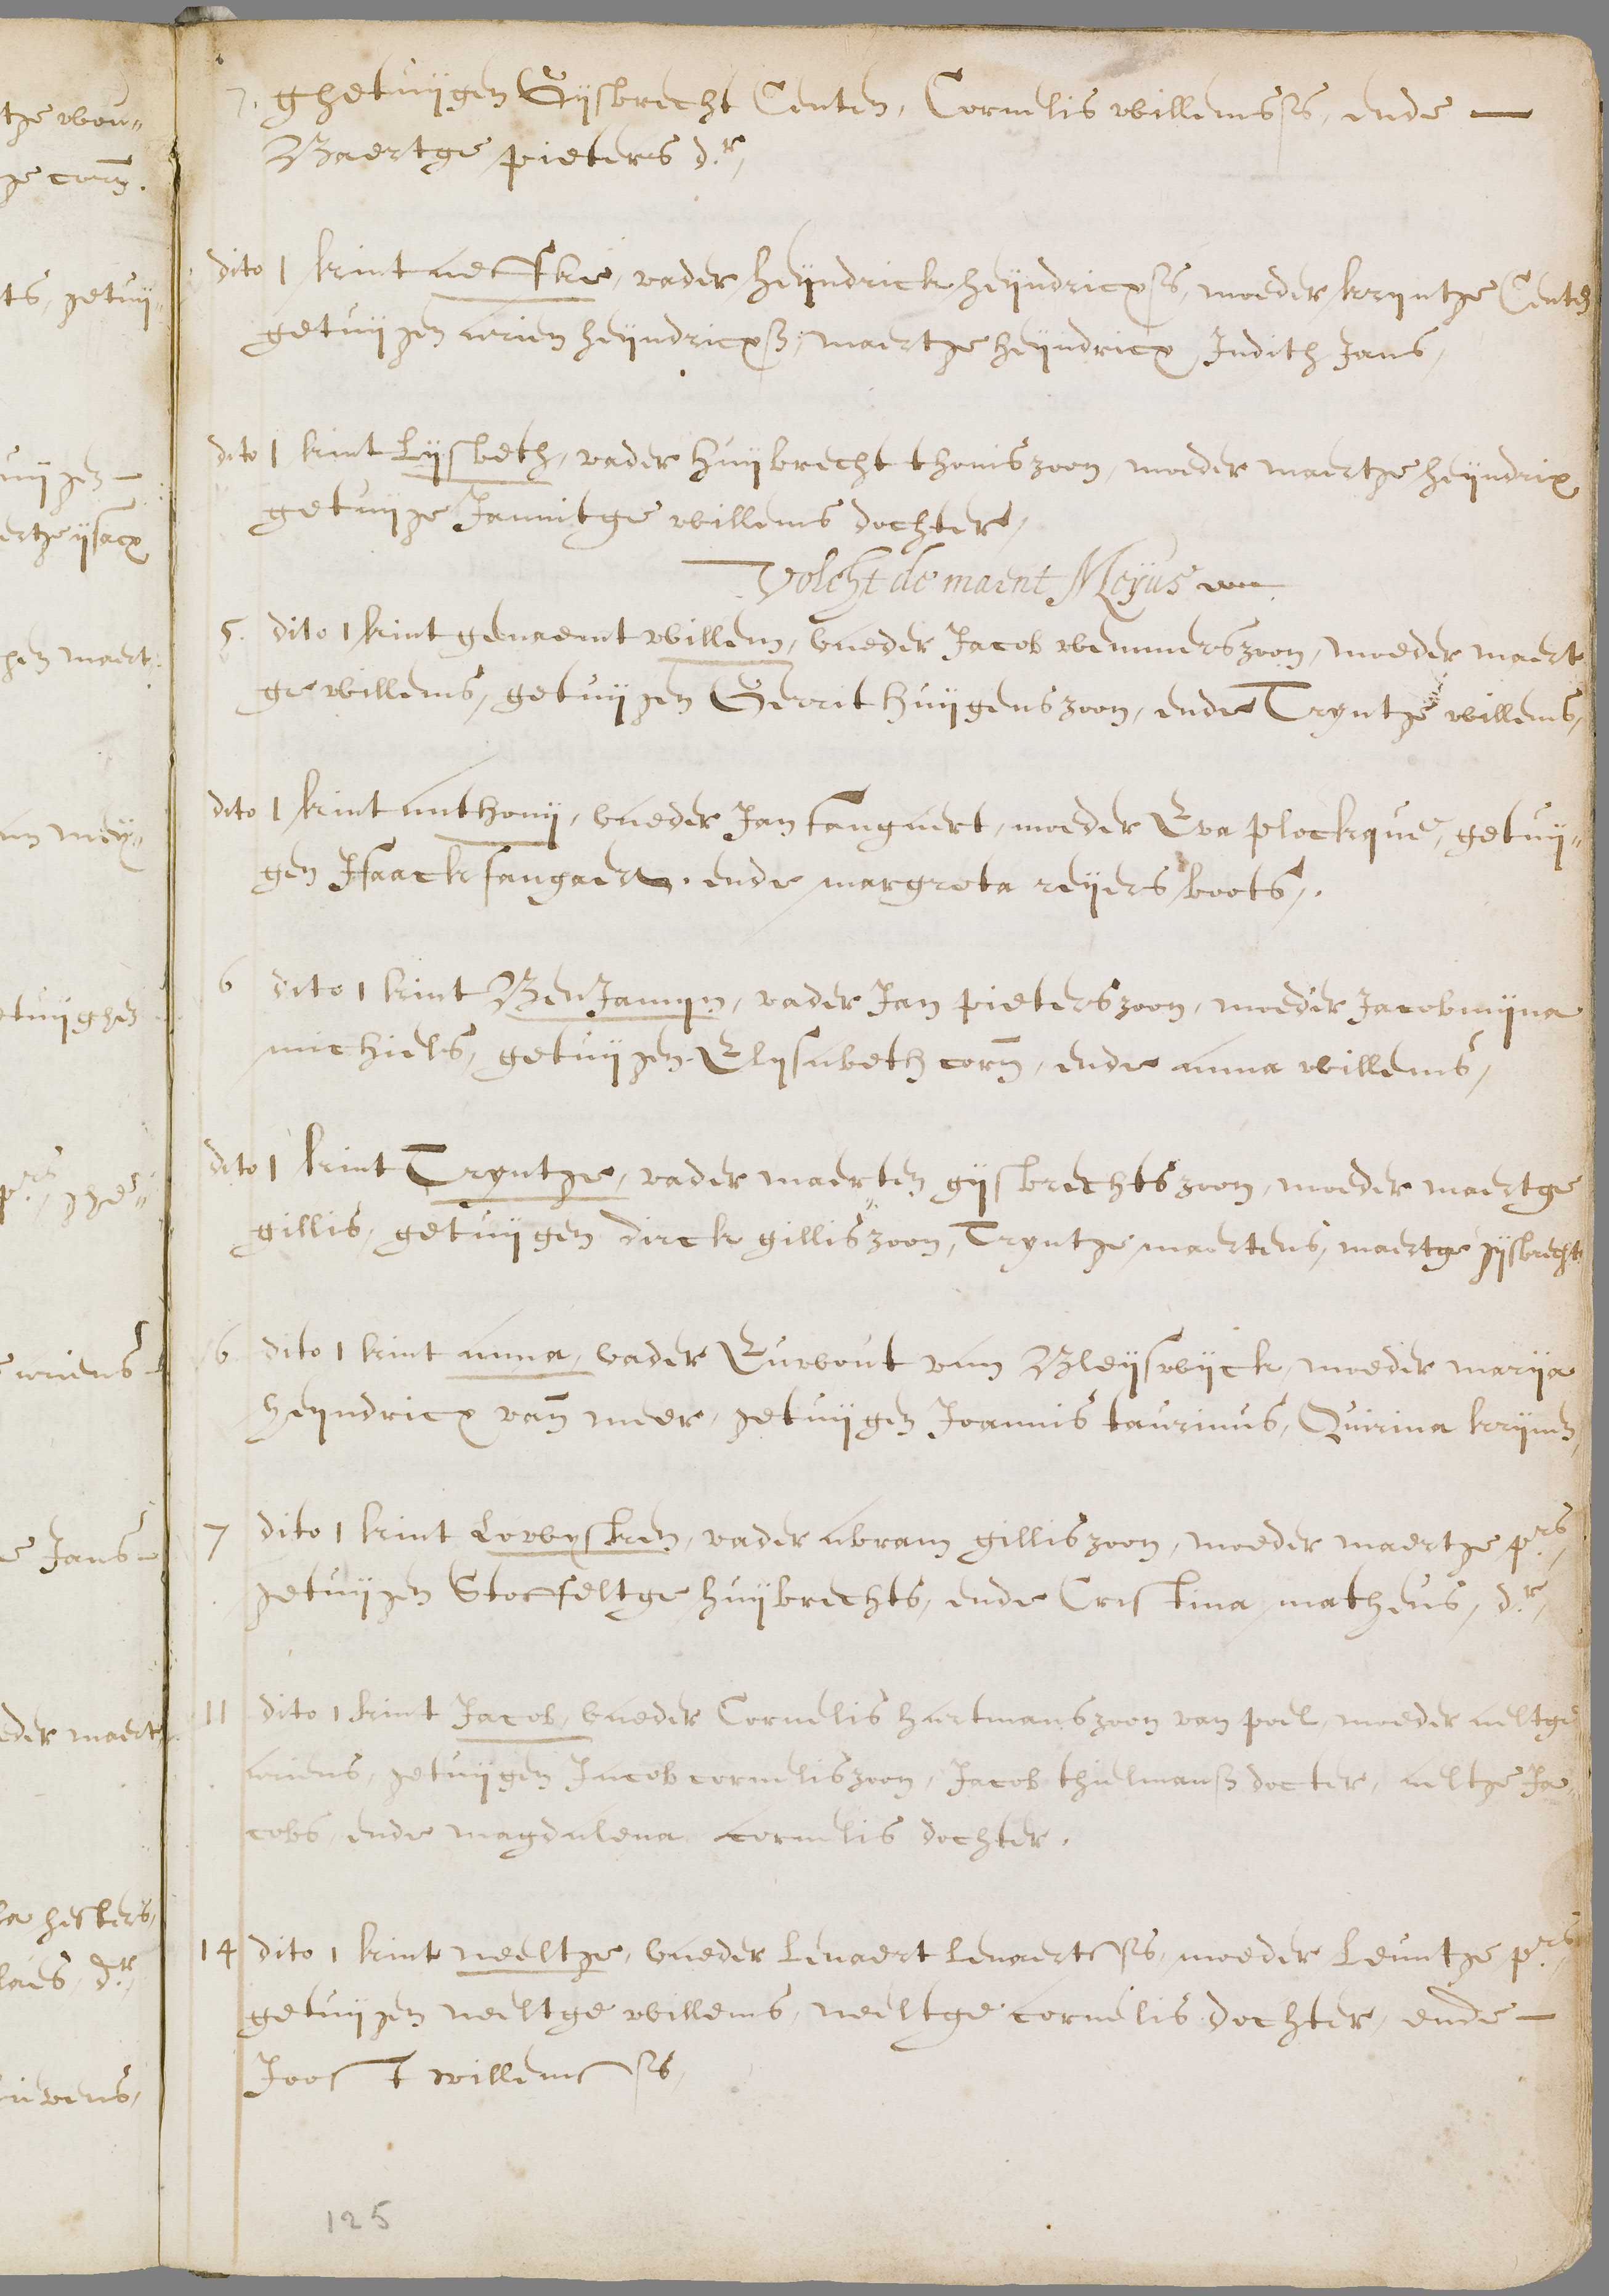 tge wou„
ge corn̄.
ts, getuij„
uijgen
ertge ijsacx
hen maert
an meij„
etuijghen
p.rs, ghe„
ariens
e Jans
eder maert
la hesters,
laes, d.r,
uwens,
7. ghetuijgen Gijsbrecht Centen, Cornelis willemsss, ende —
Baertge pieters d.r,
dito 1 kint neeffke, vader heijndrick heijndricxss, moeder kryntge Centen
getuijgen arien heijndricxss, maertge heijndricx, Judith Jans,
dito 1 kint Lijsbeth, vader Huijbrecht thoniszoon, moeder maertge heijndrix
getuijge Jannitge willems dochter,
Volcht de maent Meyus
5. dito 1 kint genaemt willem, vaeder Jacob wemmerszoon, moeder maert
ge willems, getuijgen Gerrit huijgenszoon, ende Tryntge willems,
dito 1 kint anthonij, vaeder Jan fangaert, moeder Eva plockque, getuij„
gen Isaack fangaert. ende margreta reijers boots,.
6 dito 1 kint BenJamyn, vader Jan pieterszoon, moeder Jacobmijna
michiels, getuijgen Elysabeth corn̄, ende anna willems,
dito 1 kint Tryntge, vader maerten gijsbrechtszoon, moeder maertge
gillis, getuijgen dirck gilliszoon, Tryntge maertens, maertge gijsbrecht
6 dito 1 kint anna, vader Euwout van Bleijswijck, moeder marija
heijndricx van̄ meer, getuijgen Joannis taurinus, Quirina krijnen,
7 dito 1 kint Lowysken, vader abram gilliszoon, moeder maertge p.rs,
getuijgen Stoffeltge huijbrechts, ende Cristina matheus, d.r,
11 dito 1 kint Jacob, vaeder Cornelis hartmanszoon van poel, moeder aeltge
ariens, getuijgen Jacob corneliszoon, Jacob thielmanss docter, aeltge Ja„
cobs, ende magdalena cornelis dochter.
14 dito 1 kint neeltge, vaeder Lenaert Lenaertsss, moeder Leuntge p.rs,
getuijgen neeltge willems, neeltge cornelis dochter, ende —
Joost willemsss,
125